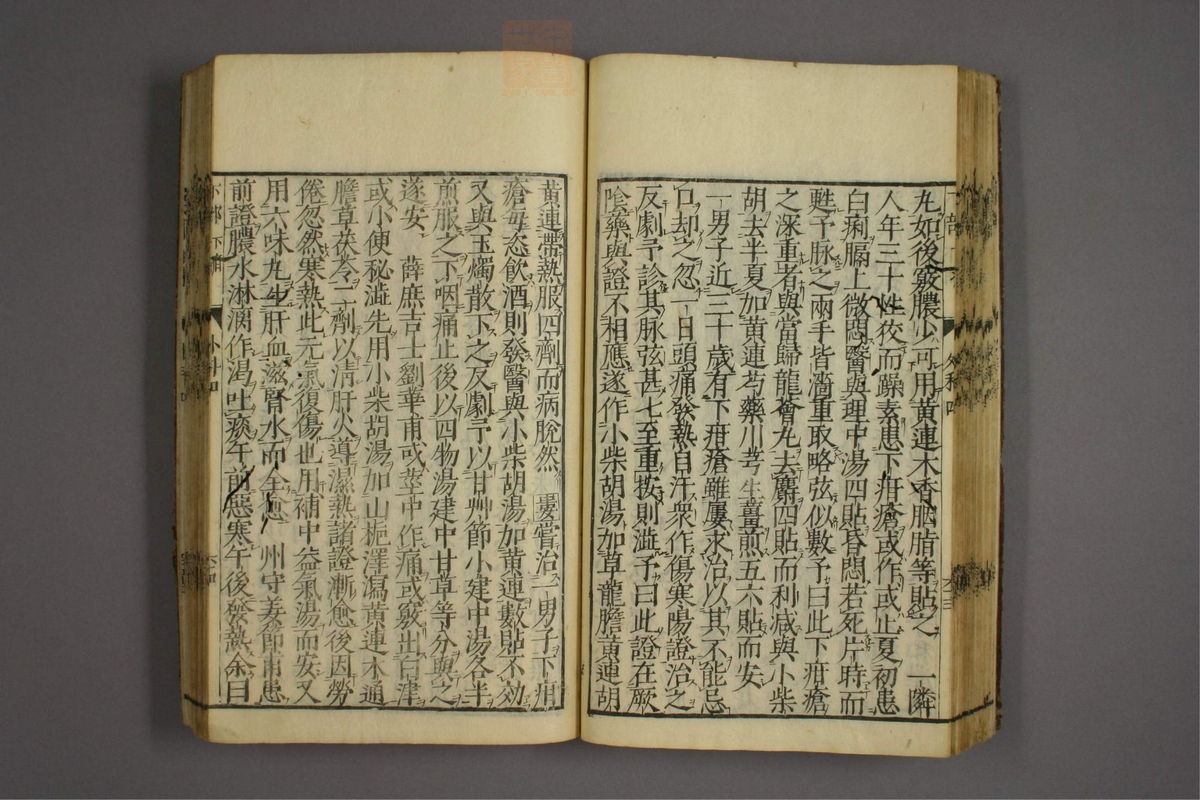 九如後竅膿少可用黃連木香胭脂等貼之　一隣
人年三十性狡而躁素患下疳瘡或作或止夏初患
白痢膈上微悶醫與理中湯四貼昏悶若死片時而
甦予脉之兩手皆濇重取略弦似數予曰此下疳瘡
之深重者與當歸龍薈丸去麝四貼而利減與小柴
胡去半夏加黃連芍藥川芎生薑煎五六貼而安
一男子近三十歲有下疳瘡雖屢求治以其不能忌
口却之忽一日頭痛發熱自汗衆作傷寒陽證治之
反劇予診其脉弦甚七至重按則濇予曰此證在厥
陰藥與證不相應遂作小柴胡湯加草龍膽黃連胡
黃連帶熱服四劑而病脫然　婁嘗治一男子下疳
瘡每恣飲酒則發醫與小柴胡湯加黃連數貼不効
又與玉燭散下之反劇予以甘艸節小建中湯各半
煎服之下咽痛止後以四物湯建中甘草等分與之
遂安　薛庶吉士劉華甫或莖中作痛或竅出白津
或小便秘澁先用小柴胡湯加山梔澤瀉黃連木通
膽草茯苓二劑以淸肝火導濕熱諸證漸愈後因勞
倦忽然寒熱此元氣復傷也用補中益氣湯而安又
用六味丸生肝血滋腎水而全愈　州守姜節甫患
前證膿水淋漓作渴吐痰午前惡寒午後發熱余曰